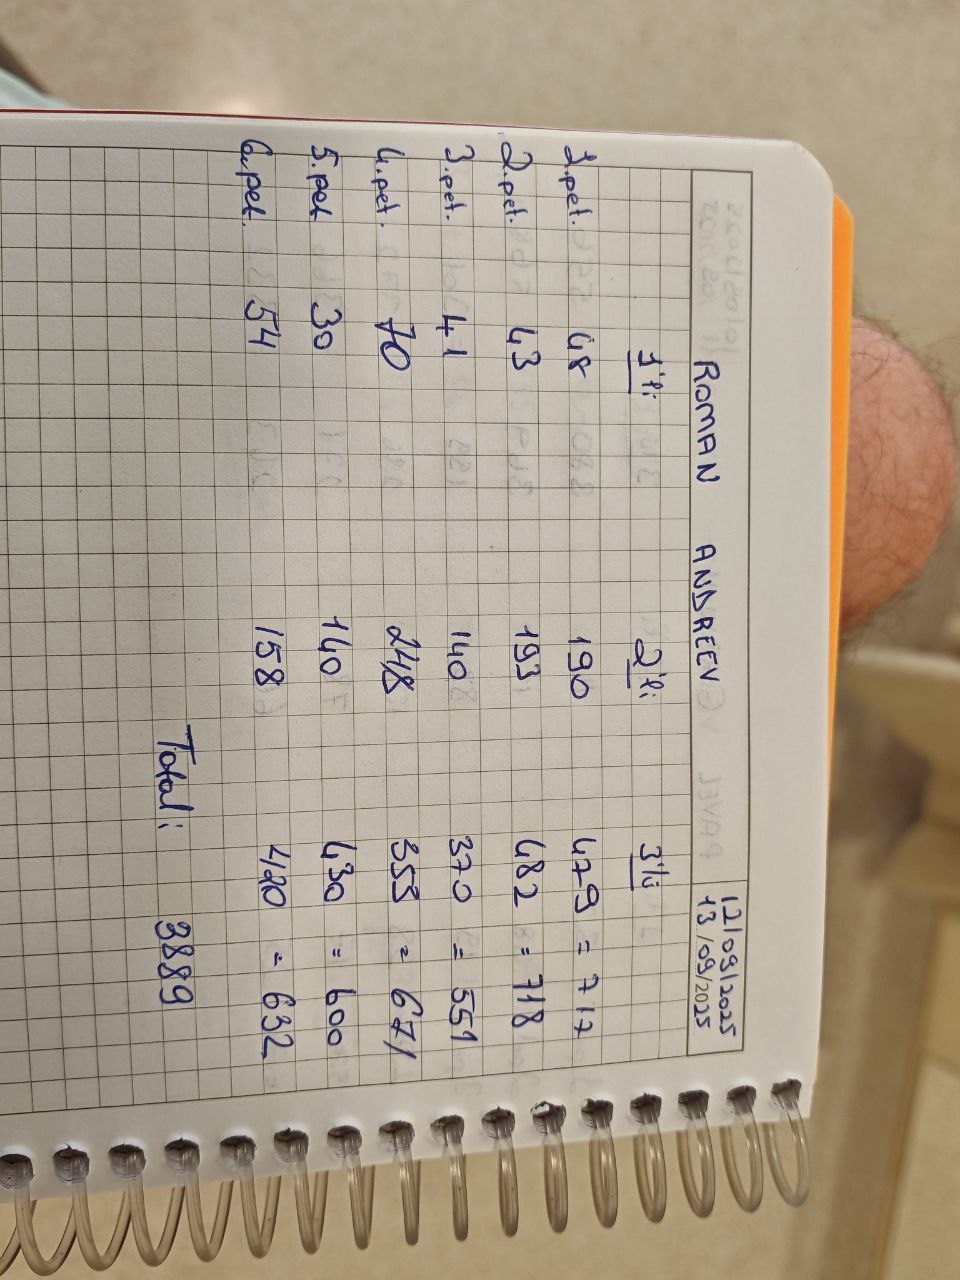 12/09/2025
ROMAN ANDREEV 13/09/2025
1'li 2'li 3'lü
1.pet. 48 190 479 = 717
2.pet. 43 193 482 = 718
3.pet. 41 140 370 = 551
4.pet. 70 248 353 = 671
5.pet 30 140 430 = 600
6.pet. 54 158 420 = 632
Total: 3889